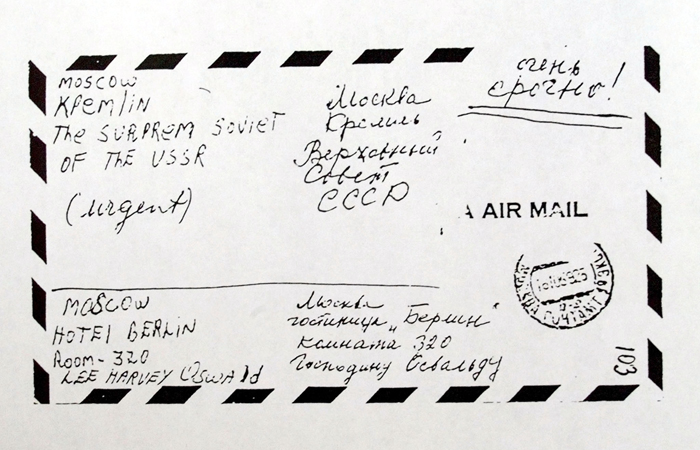 MOSCOW
KREMlIN
The SURPREM SOVIET
OF The USSR
(urgent)
Москва
Кремль
Верховний
Совет
СССР
очень
срочно!
A AIR MAIL
MOSCOW
HOTEl BERLIN
Room - 320
LEE HARVEY OSWAld
Москва
гостиница „Берлин"
комната 320
Господину Освальду
МОСКВА
ПОЧТАМТ
103